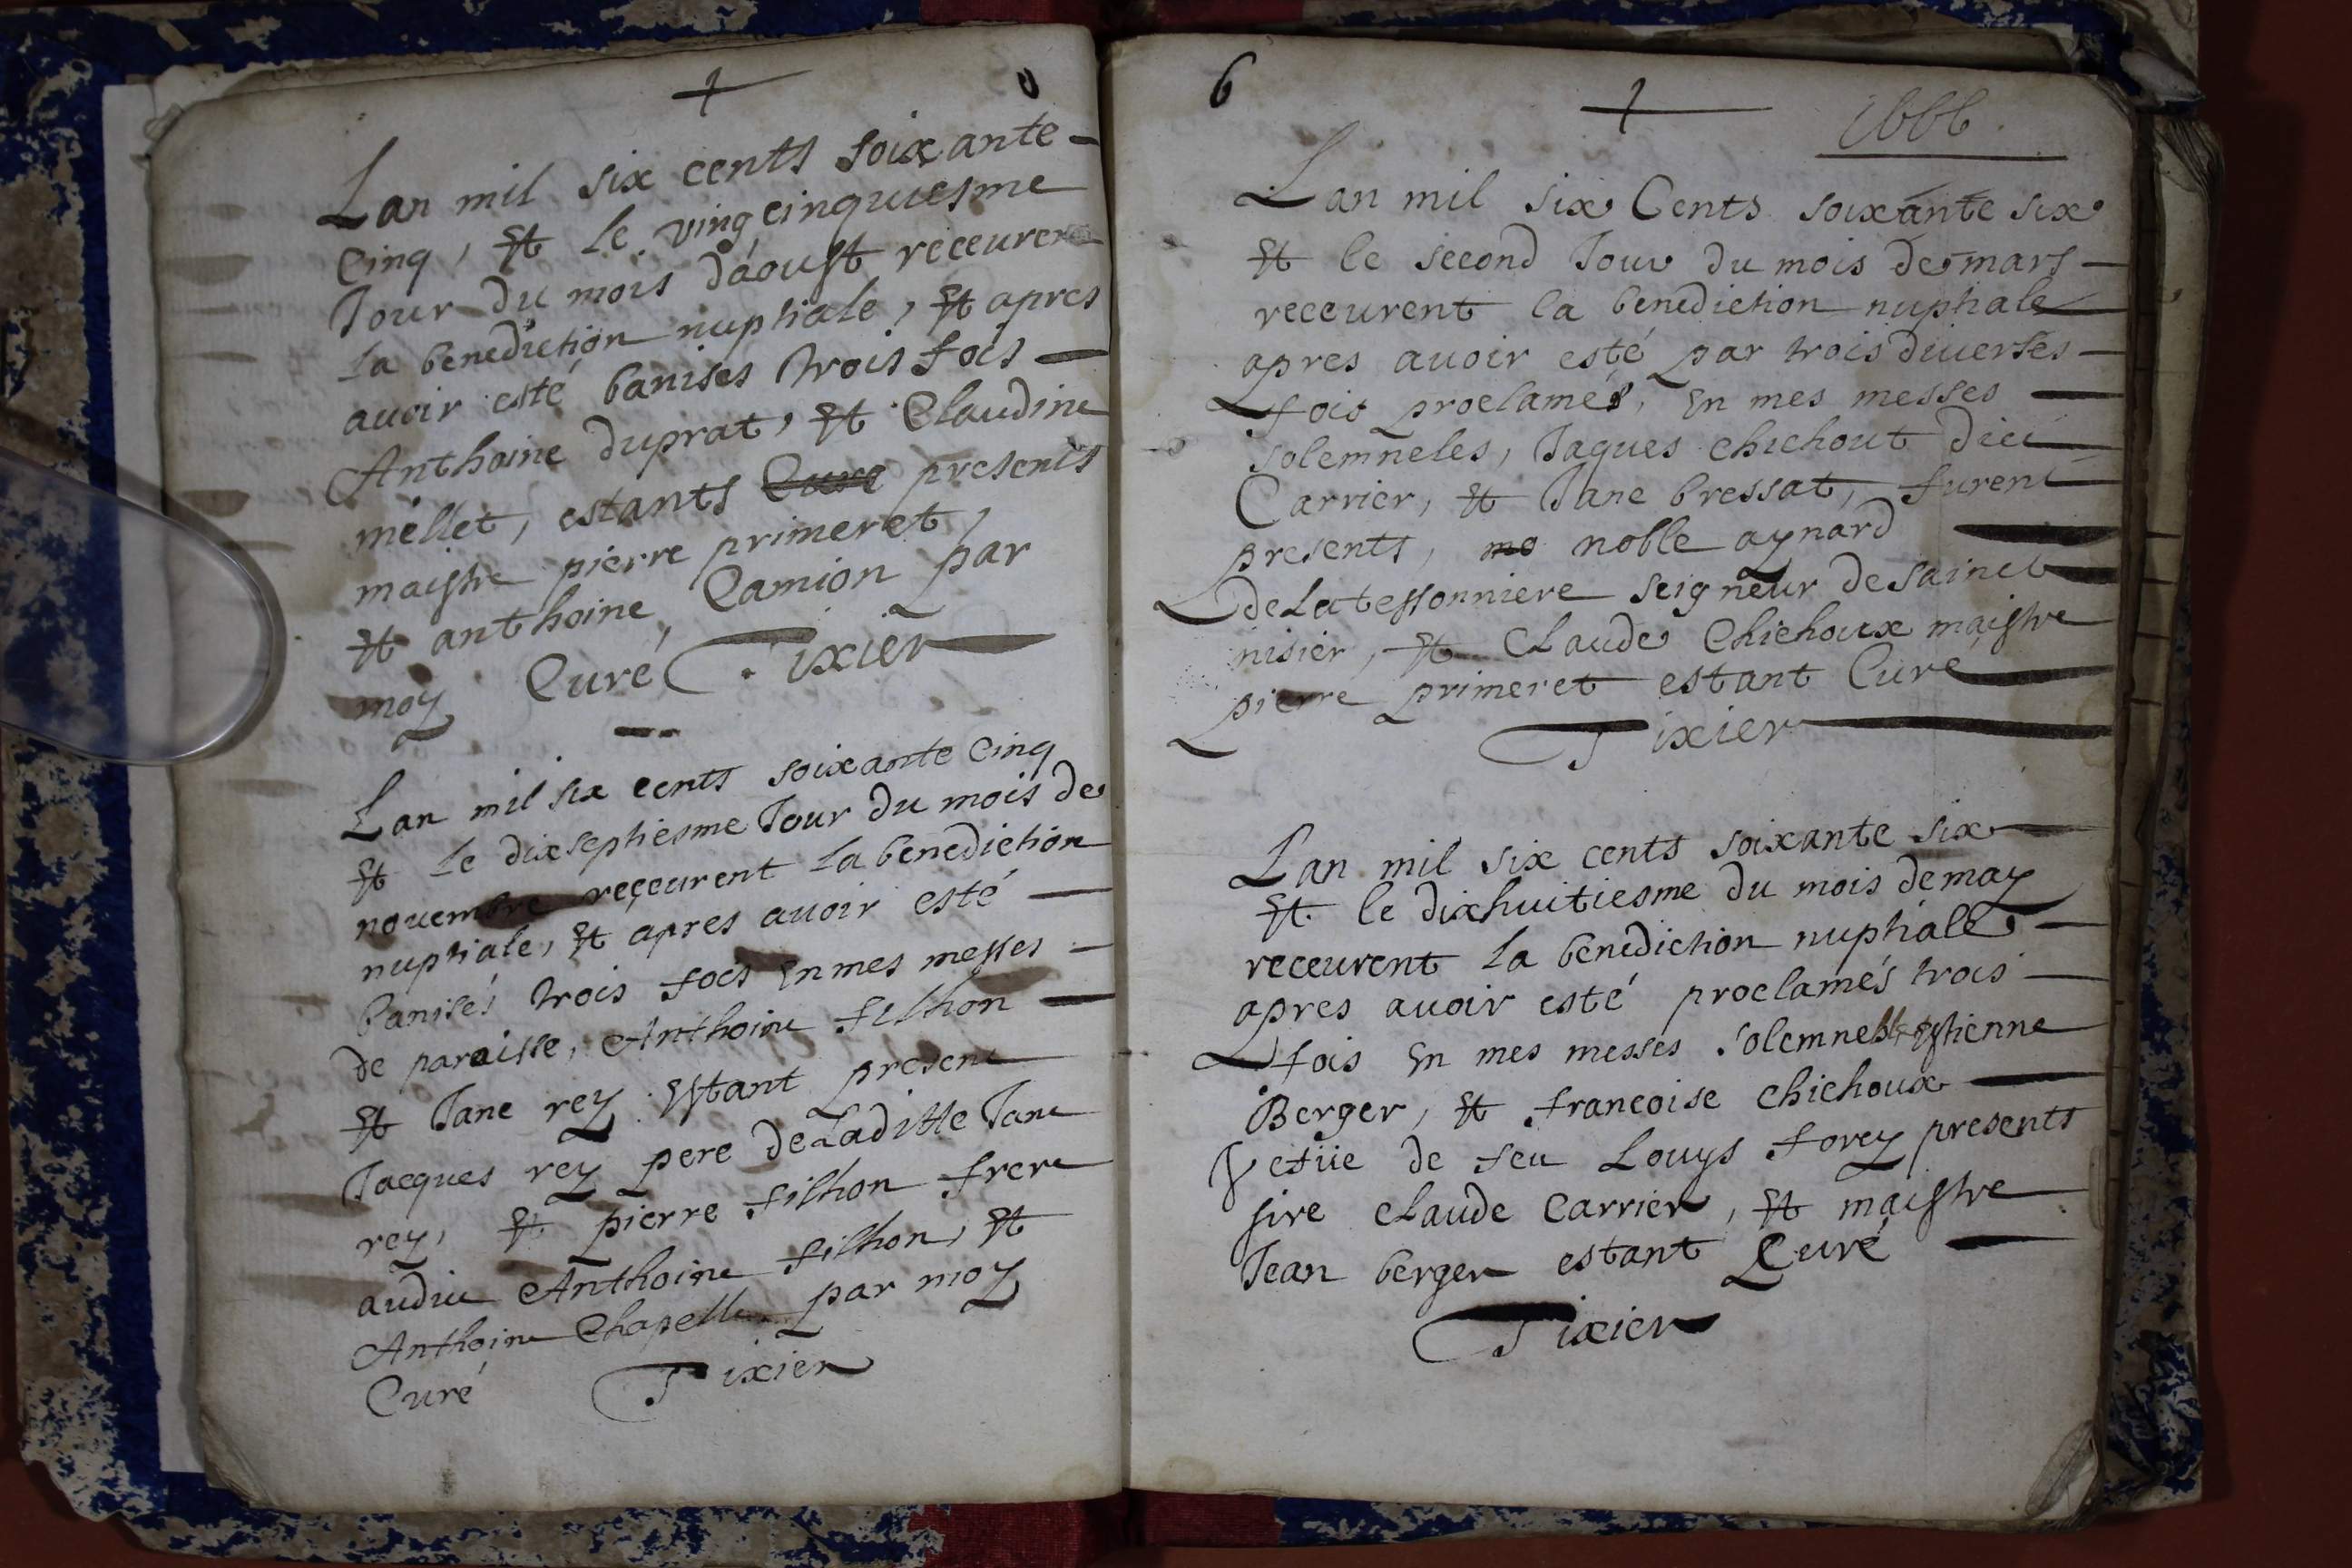 Lan mil six cents soixante -
Cinq, Et le ving cinquiesme
Jour du mois d'aoust receurent
la benediction nuptiale, Et apres
avoir esté banises trois fois -
Anthoine duprat, Et Claudine
mellet, estants Curé presents
maistre pierre primeret,
Et anthoine Camion par
moy Curé Tixier
Lan mil six cents soixante Cinq
Et le dixseptiesme Jour du mois de
novembre receurent la benediction
nuptiale, Et apres avoir esté -
banisés trois fois En mes messes -
de paroisse, Anthoine filhon -
Et Jane rey Estant present
Jacques rey pere de Laditte Jane
rey, Et pierre filhon frere
audict Anthoine filhon, Et
Anthoine Chapelle par moy
Curé Tixier
6
1666.
Lan mil six Cents soixante six
Et le second Jour du mois de mars -
receurent la benediction nuptiale
apres avoir esté par trois diverses -
fois proclamés, En mes messes -
solemneles, Jaques chichout dict
Carrier, Et Jane bressat, furent
presents, mo noble aynard
de Latessonniere seigneur de sainct
nisier, Et Claude Chichoux maistre
pierre primeret estant Curé
Tixier
Lan mil six cents soixante six
Et le dixhuitiesme du mois de may
receurent la benediction nuptiale -
apres avoir esté proclamés trois -
fois En mes messes solemneles Estienne
Berger, Et francoise Chichoux -
Vefüe de feu Louys forey presents
sire Claude Carrier, Et maistre
Jean berger estant Curé -
Tixier